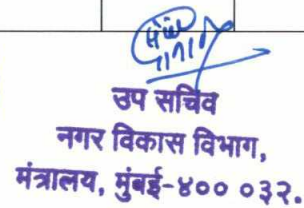 उप सचिव
नगर विकास विभाग,
मंत्रालय, मुंबई-४०० ०३२.